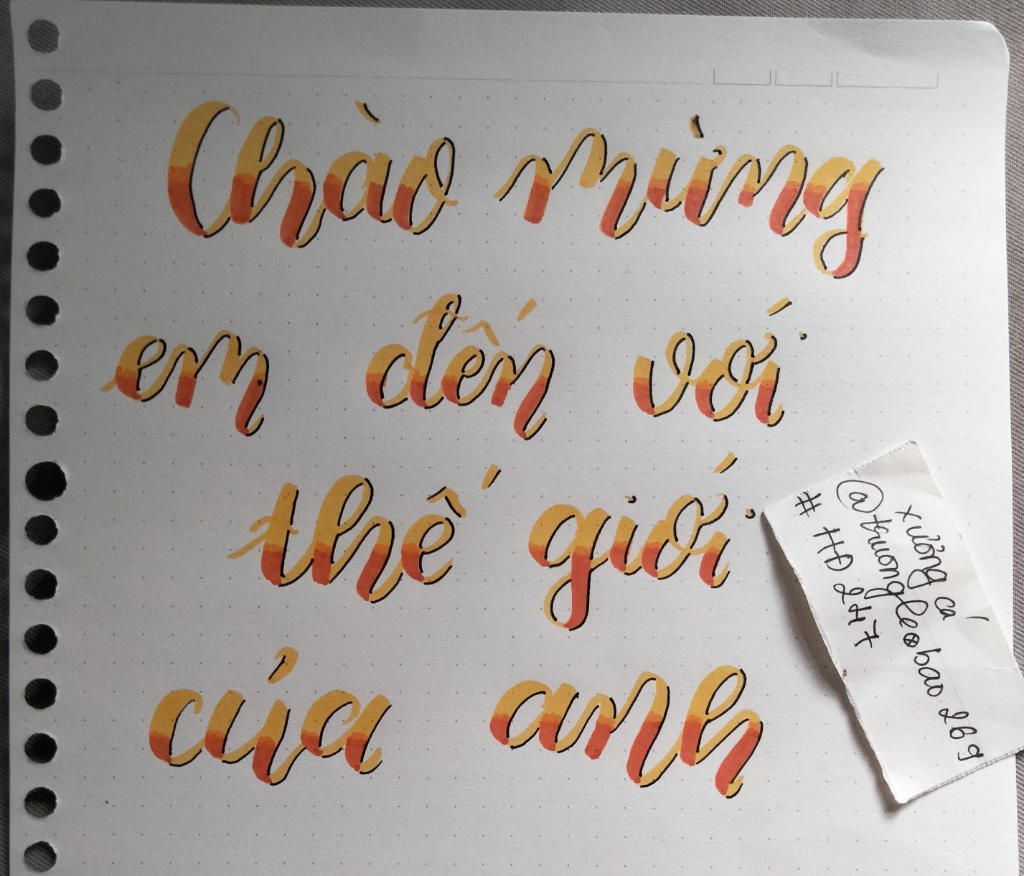 Chào mừng
em đến với
thế giới
của anh
xưởng cá
@truongleobao 269
# HĐ 247